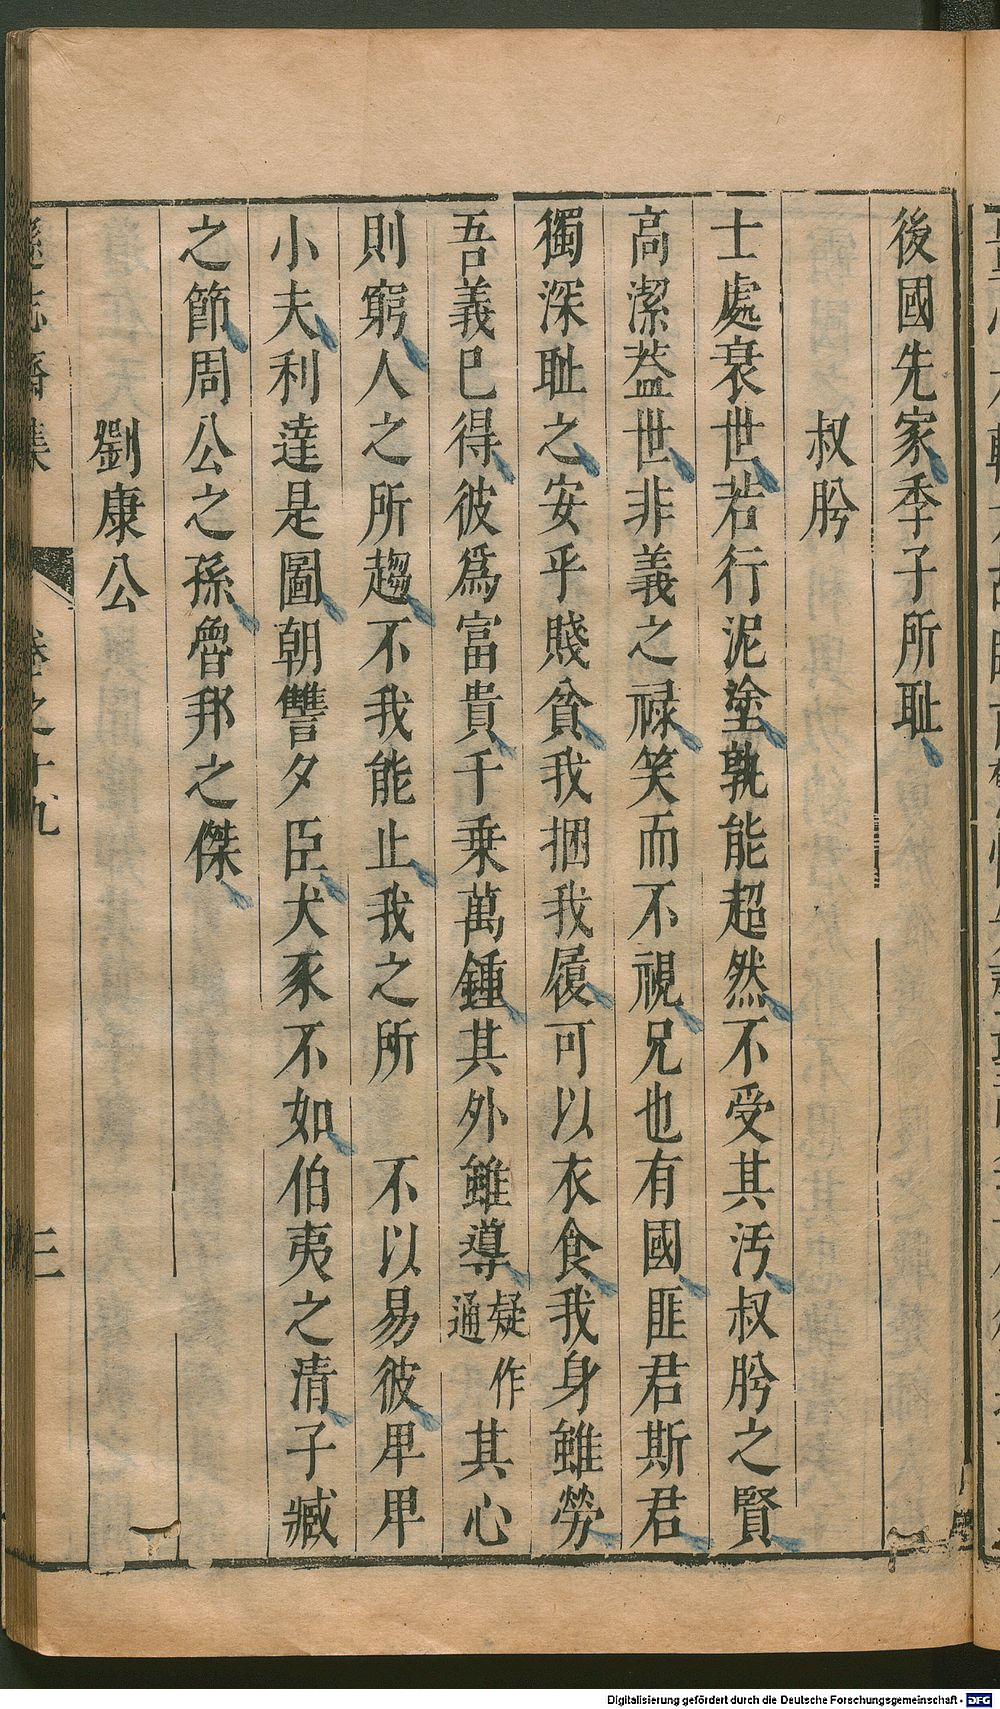 後國先家季子所恥
叔肸
士處衰世若行泥塗孰能超然不受其汚叔肸之賢
高潔葢世非義之祿笑而不視兄也有國匪君斯君
獨深恥之安乎賤貧我捆我履可以衣食我身雖勞
吾義巳得彼爲富貴千乗萬鍾其外雖導疑作通其心
則窮人之所趨不我能止我之所 不以易彼卑卑
小夫利達是圖朝讐夕臣犬豕不如伯夷之清子臧
之節周公之孫魯邦之傑
劉康公
遜志齋集 卷之十九 三
Digitalisierung gefördert durch die Deutsche Forschungsgemeinschaft - DFG